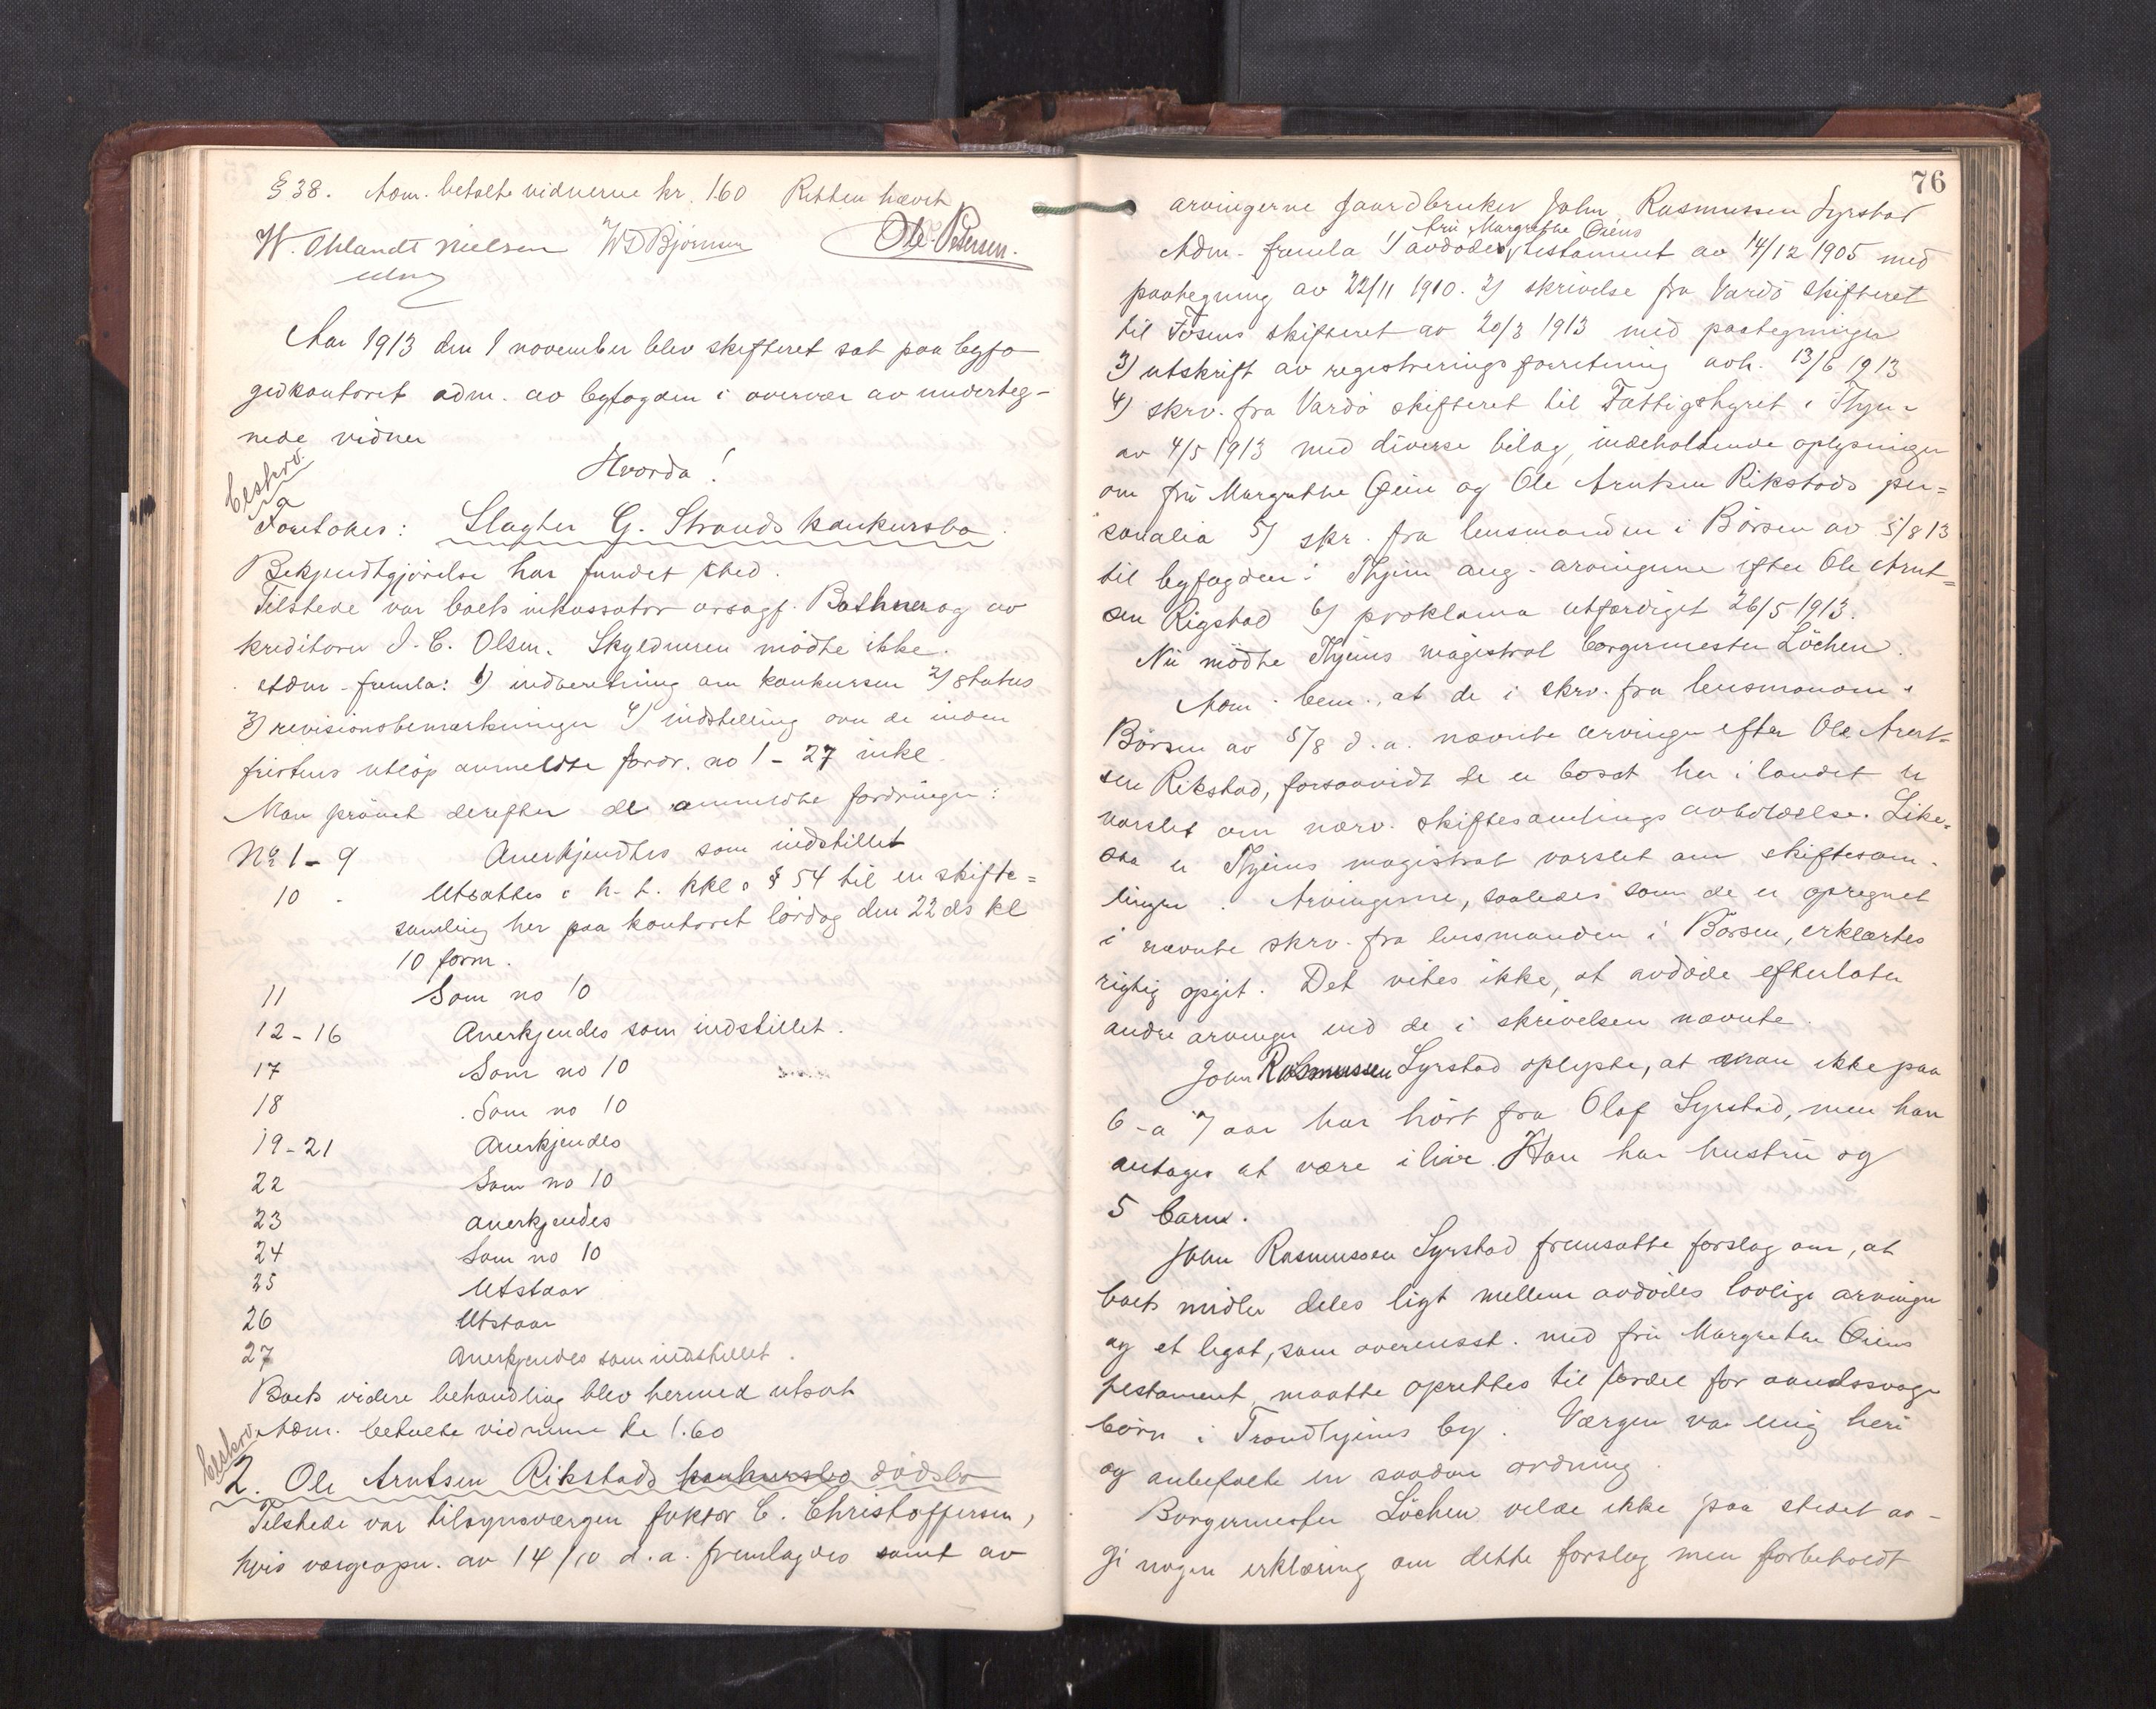 § 38. Adm. betalte vidnerne kr. 1.60 Retten hævet
W. Ohlandt Nielsen W D Bjørnson Ole Pedersen.
Aar 1913 den 1 november blev skifteret sat paa byfo-
gedkontoret adm. av byfogden i overvær av underteg-
nede vidner
Hvorda!
beskrv.
a
Foretokes: Slagter G. Strands konkursbo.
Bekjendtgjørelse har fundet sted.
Tilstede var boets inkassator orsagf. Bathner og av
kreditorer J. C. Olsen. Skyldneren mødte ikke.
Adm. fremla: 1) indberetning om konkursen 2) status
3) revisionsbemærkninger 4) indstilling over de inden
fristens utløp anmeldte fordr. no 1 - 27 inkl.
Man prøvet derefter de anmeldte fordringer:
No 1 - 9 Anerkjendtes som indstillet
10 - Utsættes i h. t. kkl. § 54 til en skifte=
samling her paa kontoret lørdag den 22 ds kl
10 form.
11 Som no 10
12 - 16 Anerkjendes som indstillet.
17 Som no 10
18 Som no 10
19 - 21 Anerkjendes
22 Som no 10
23 Anerkjendes
24 Som no 10
25 Utstaar
26 Utstaar
27 Anerkjendes som indstillet.
Boets videre behandling blev hermed utsat
beskrv. Adm. betalte vidnerne kr 1.60
2. Ole Arntsen Rikstads konkursbo dødsbo
Tilstede var tilsynsværgen faktor C. Christoffersen,
hvis vergeopn. av 14/10 d.a. fremlagdes samt av
76
arvingerne gaardbruker John Rasmussen Syrstad
fru Margrethe Øiens
Adm. fremla 1) avdødes testament av 14/12 1905 med
paategning av 22/11 1910. 2) skrivelse fra Vardø skifteret
til Fosens skifteret av 20/3 1913 med paategninger
3) utskrift av registreringsforretning avh. 13/6 1913
4) skrv. fra Vardø skifteret til Fattigstyret i Thjem
av 4/5 1913 med diverse bilag, indeholdende oplysninger
om fru Margrethe Øien og Ole Arntsen Rikstads per=
sonalia 5) skr. fra lensmanden i Børsen av 5/8 13
til byfogden i Thjem ang. arvingerne efter Ole Arnt=
sen Rigstad 6) proklama utfærdiget 26/5 1913.
Nu mødte Thjems magistrat borgermester Løchen.
Adm. bem., at de i skrv. fra lensmanden i
Børsen av 5/8 d.a. nævnte arvinger efter Ole Arnt-
sen Rikstad, forsaavidt de er bosat her i landet er
varslet om nærv. skiftesamlings avholdelse. Like-
saa er Thjems magistrat varslet om skiftesam-
lingen. Arvingerne, saaledes som de er opregnet
i nævnte skrv. fra lensmanden i Børsen, erklærtes
rigtig opgit. Det vites ikke, at avdøde efterlater
andre arvinger end de i skrivelsen nævnte.
John Rasmussen Syrstad oplyste, at man ikke paa
6 - a 7 aar har hørt fra Olaf Syrstad, men han
antages at være i live. Han har hustru og
5 barn.
John Rasmussen Syrstad fremsatte forslag om, at
boets midler deles ligt mellem avdødes lovlige arvinger
og et legat, som overensst. med fru Margrethe Øiens
testament maatte oprettes til fordel for aandssvage
børn i Trondhjems by. Værgen var enig heri
og anbefalte en saadan ordning.
Borgermester Løchen vilde ikke paa stedet av-
gi nogen erklæring om dette forslag men forbeholdt